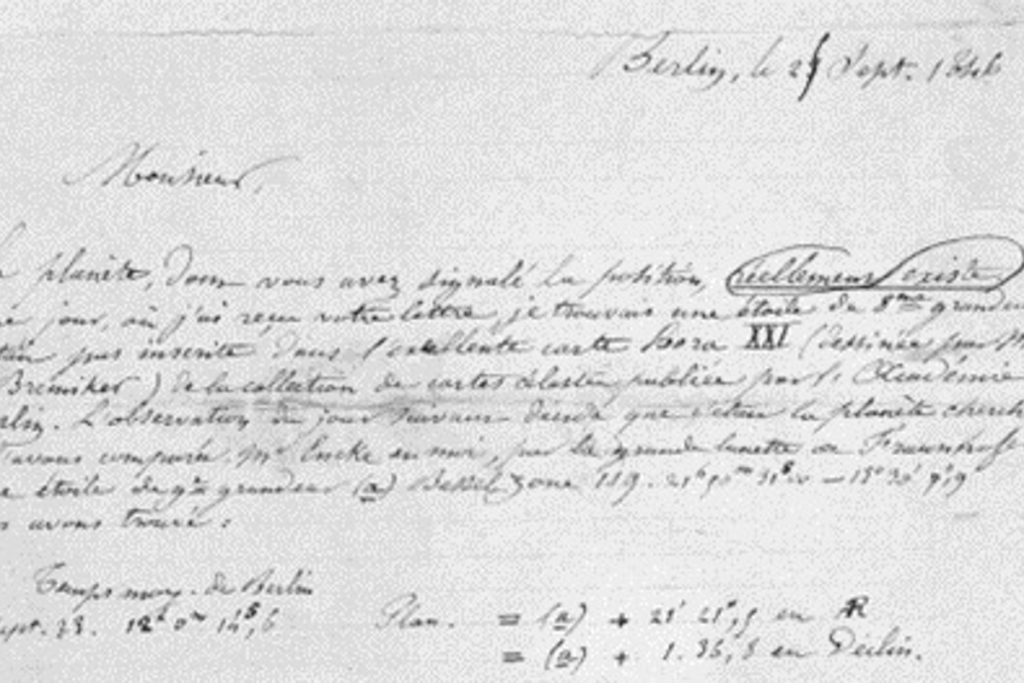 Berlin, le 25 Sept. 1846
Monsieur,
planète, dont vous avez signalé la position, réellement existe.
jour, où j'ai reçu votre lettre, je trouvais une étoile de 8me grandeur
pas inscrite dans l'excellente carte Hora XXI (dessinée par M
Bremiker) de la collection de cartes célestes publiée par l'Académie
rlin. L'observation du jour suivant décida que c'était la planète cherch
l'avons comparée, Mr Encke et moi, par la grande lunette de Fraunhof
étoile de 9me grandeur (a) Bessel Zone 119.
s avons trouvé:
Temps moy. de Berlin
Sept. 23. 12h 0m 14s,6 Plan. = (a) + 21' 21",5 en AR
= (a) + 1. 36,8 en Déclin.